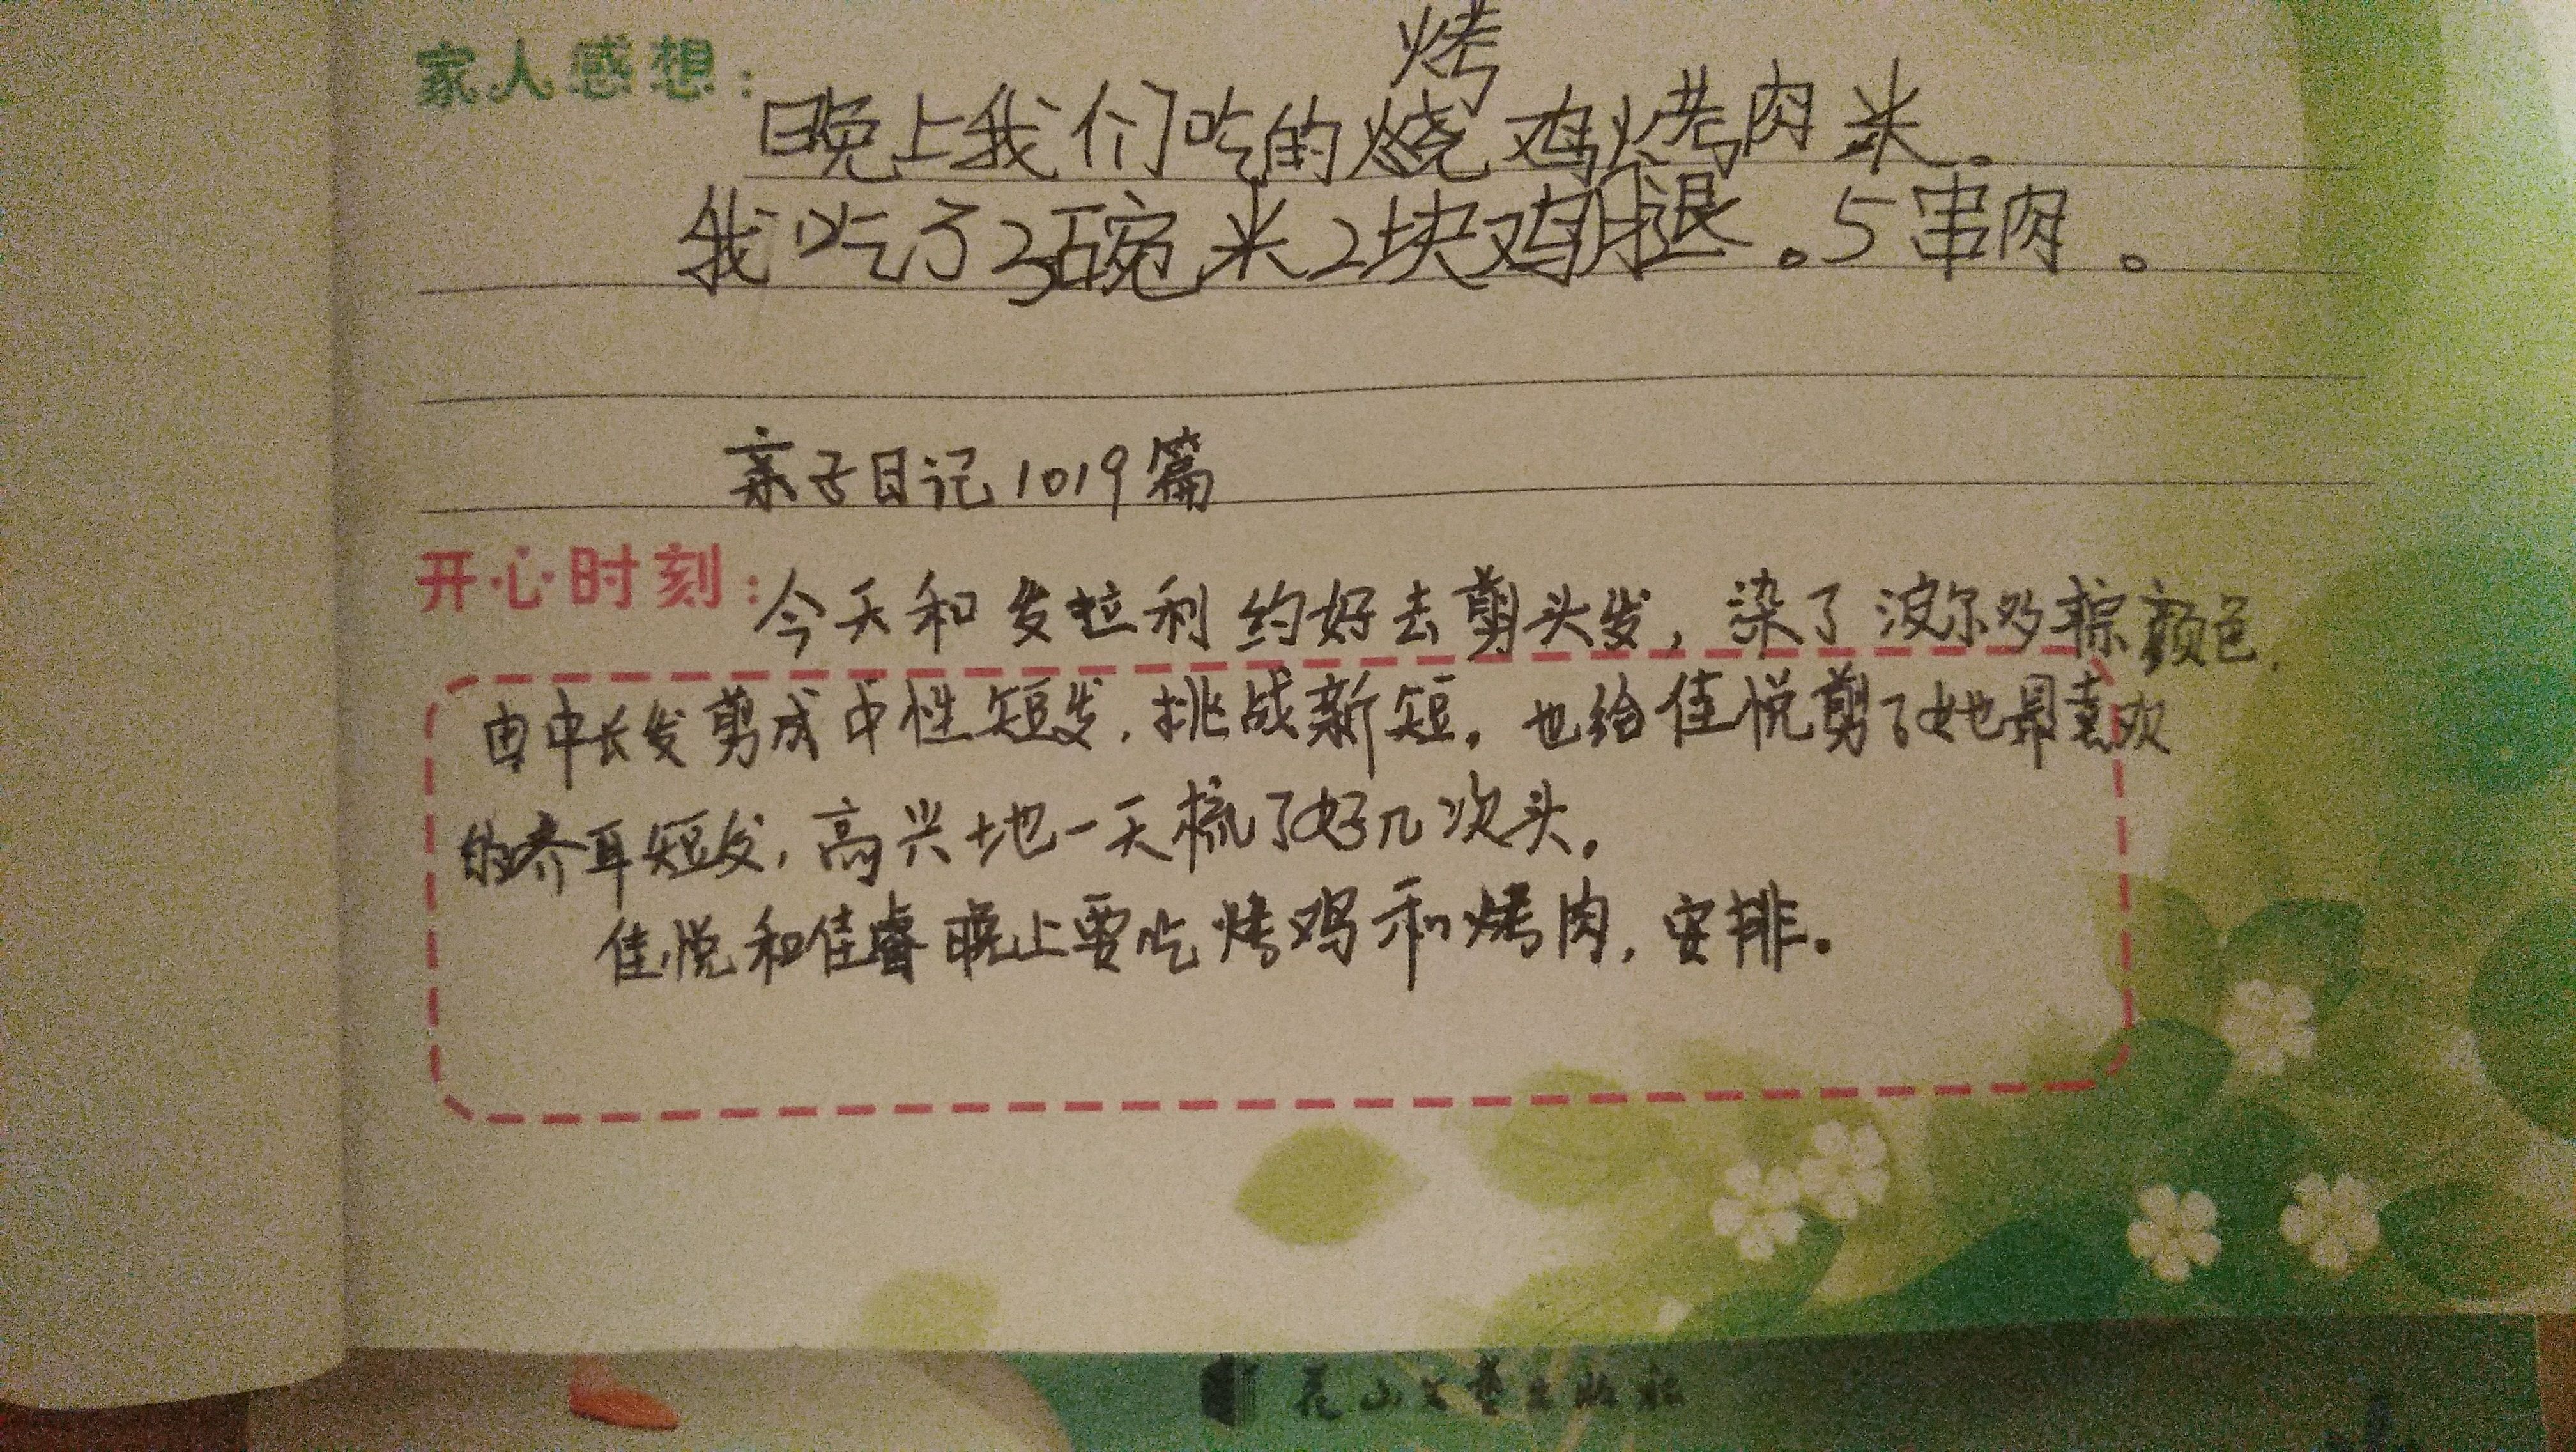 家人感想：
烤
晚上我们吃的烧鸡烤肉米。
我吃了3碗米2块鸡腿。5串肉。
亲子日记1019篇
开心时刻：今天和发拉利约好去剪头发，染了波尔多棕颜色，
由中长发剪成中性短发，挑战新短。也给佳悦剪了她最喜欢
的齐耳短发，高兴地一天梳了好几次头。
佳悦和佳睿晚上要吃烤鸡和烤肉，安排。
花山文艺出版社